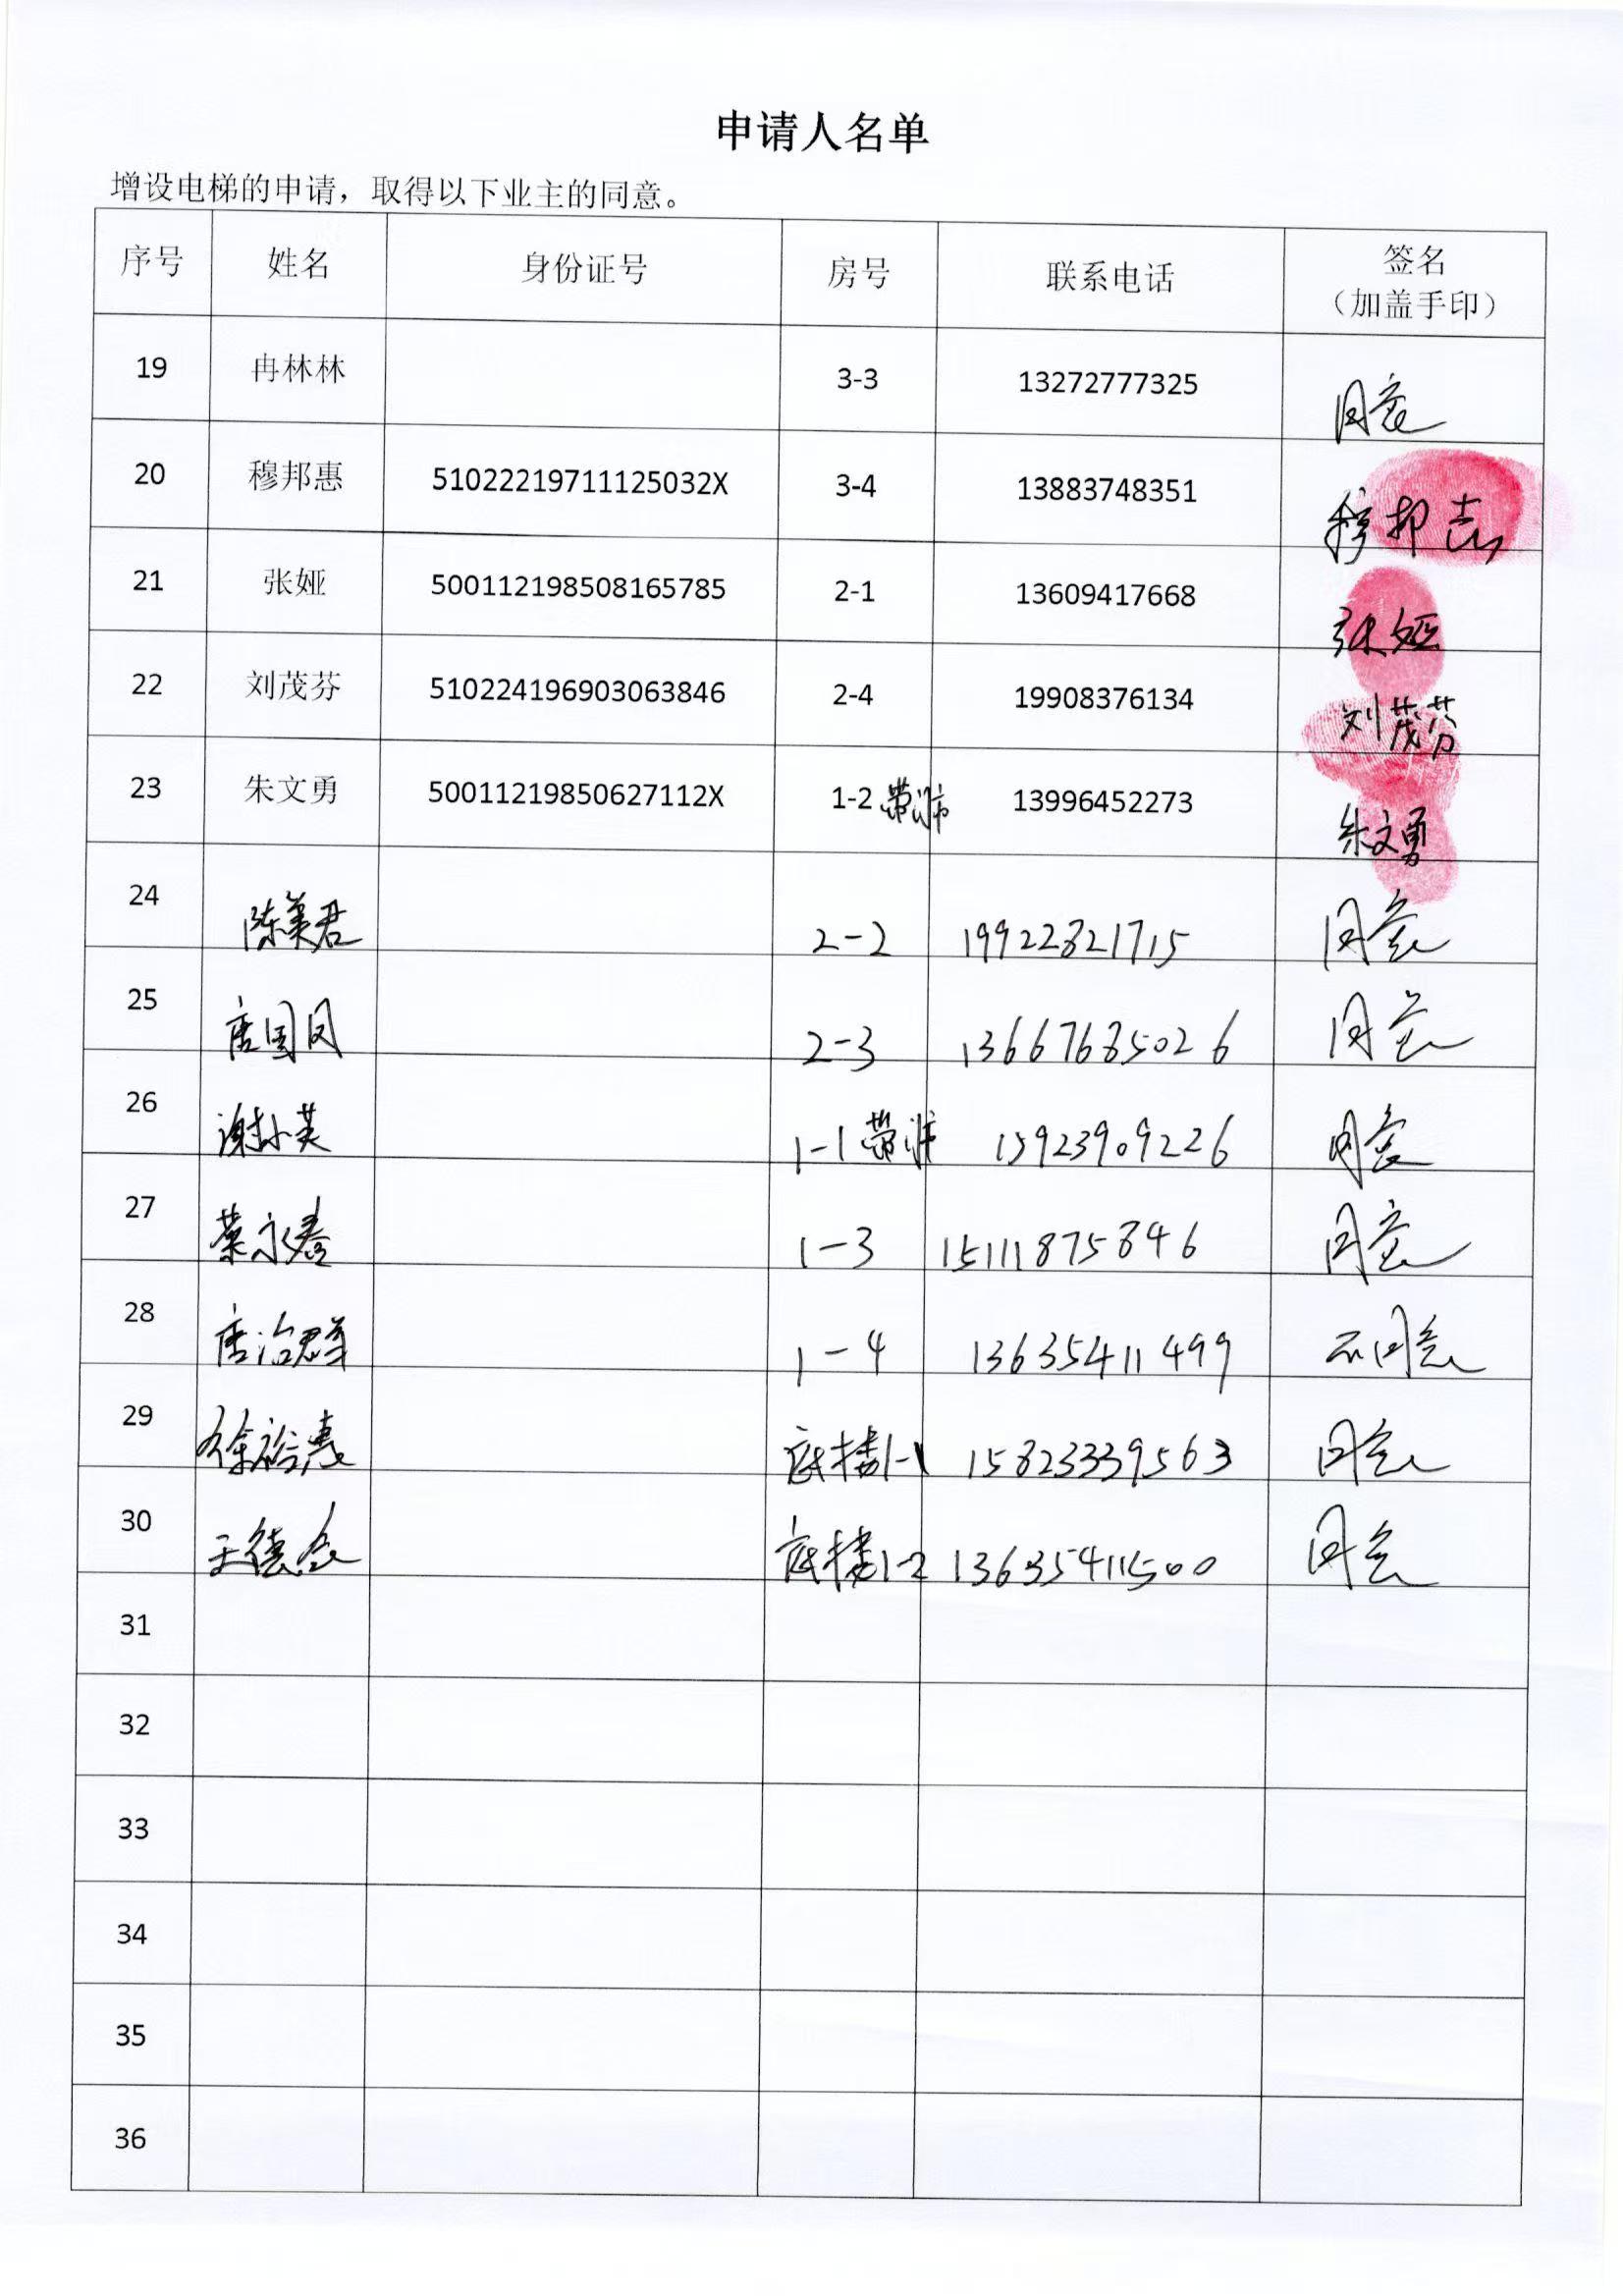 申请人名单
增设电梯的申请，取得以下业主的同意。
序号 姓名 身份证号 房号 联系电话 签名
（加盖手印）
19 冉林林 3-3 13272777325 同意
20 穆邦惠 51022219711125032X 3-4 13883748351 穆邦惠
21 张娅 500112198508165785 2-1 13609417668 张娅
22 刘茂芬 510224196903063846 2-4 19908376134 刘茂芬
23 朱文勇 50011219850627112X 1-2 13996452273 朱文勇
24 陈美君 2-2 19922821715 同意
25 唐国凤 2-3 13667685026 同意
26 谢小英 1-1 15923909226 同意
27 1-3 15111875846 同意
28 唐治群 1-4 13635411499 不同意
29 徐裕惠 底楼1-1 15823339563 同意
30 王德会 底楼1-2 13635411500 同意
31
32
33
34
35
36